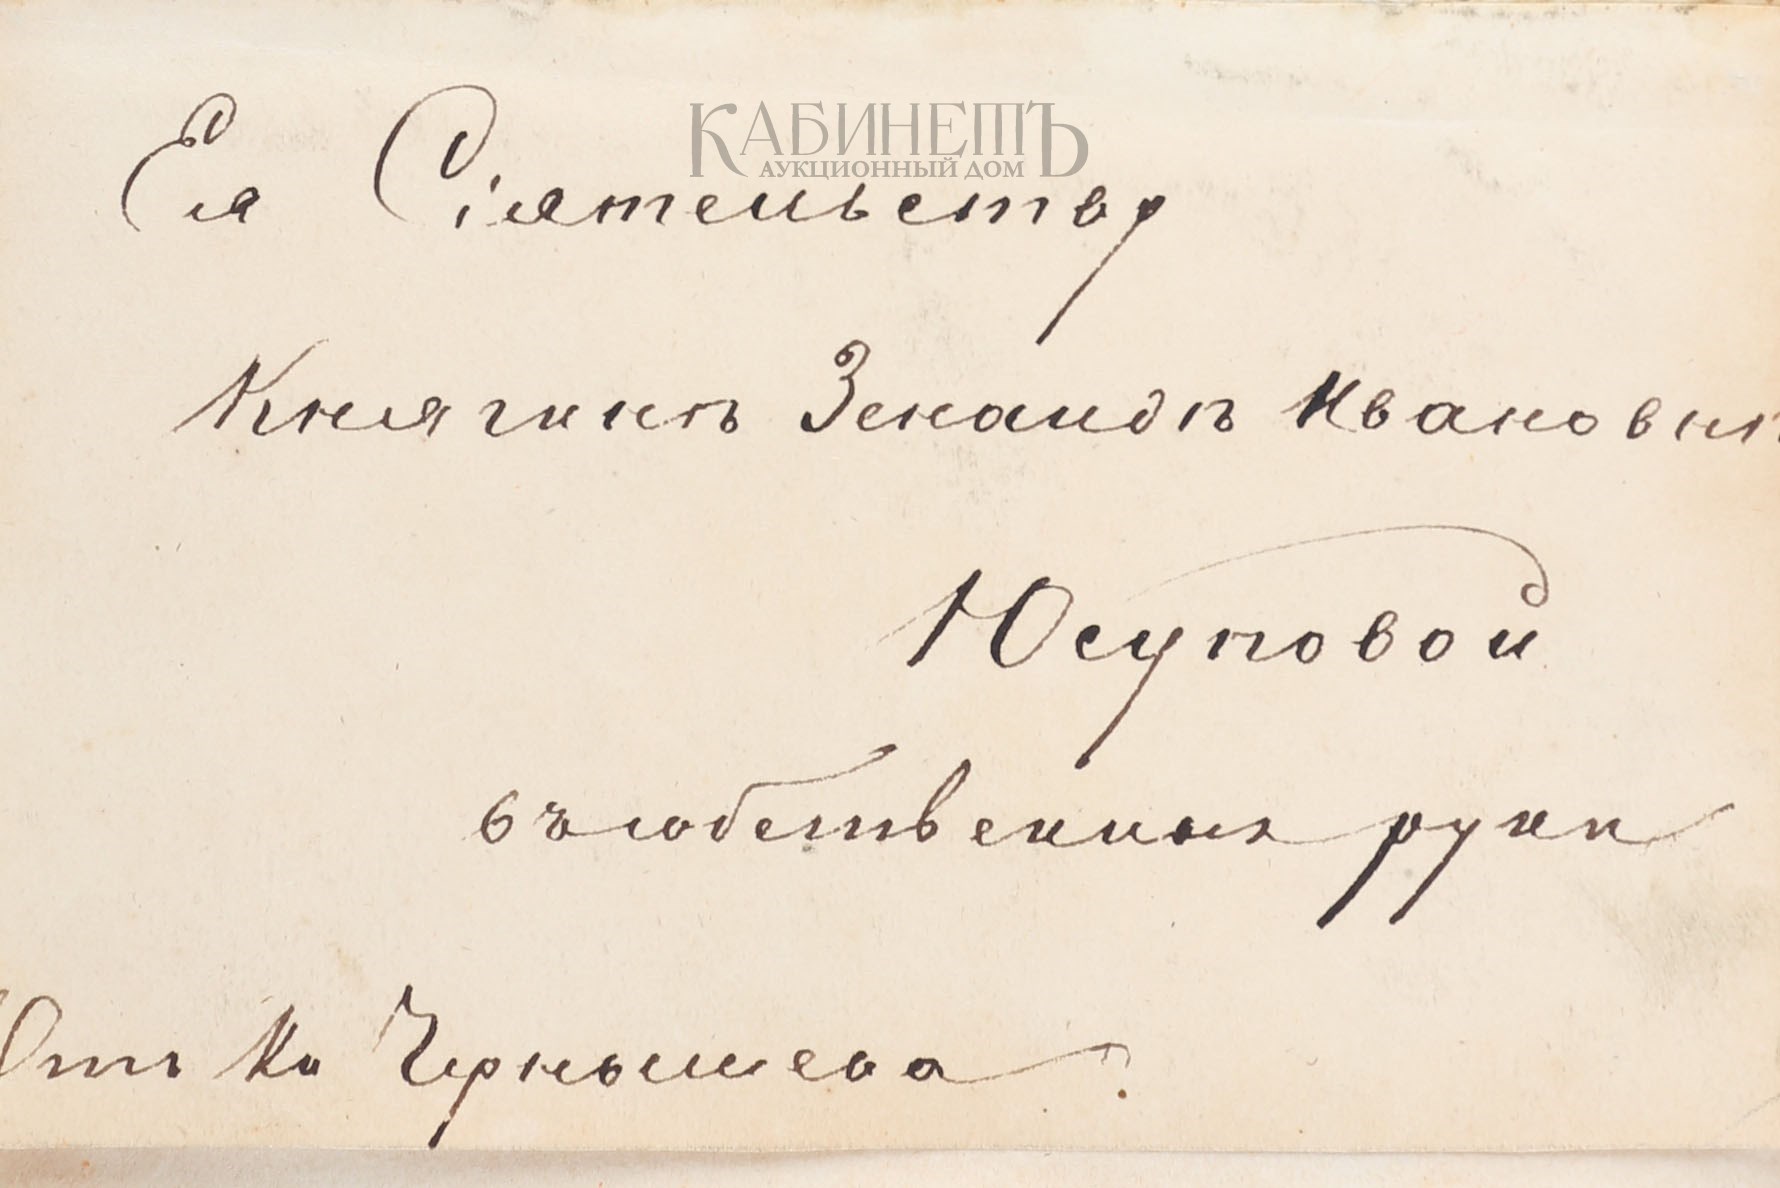 КАБИНЕТЪ
АУКЦИОННЫЙ ДОМ
Ея Сіятельству
Княгинѣ Зенаидѣ Ивановнѣ
Юсуповой
въ собственныя руки
Отъ Кн Чернышева.